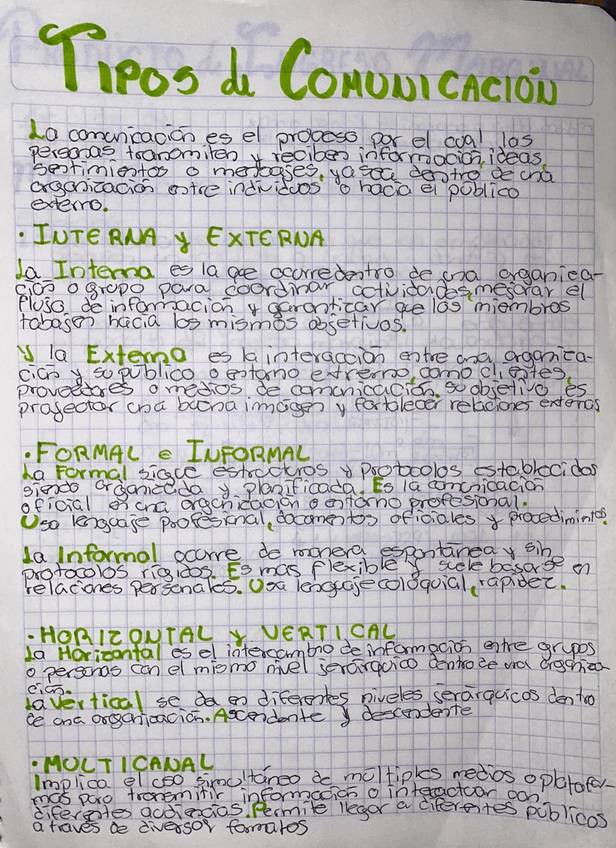 Tipos de Comunicación
La comunicación es el proceso por el cual las
personas transmiten y reciben información, ideas,
sentimientos o mensajes, ya sea dentro de una
organización entre individuos o hacia el público
externo.
· INTERNA y EXTERNA
La Interna es la que ocurre dentro de una organiza-
ción o grupo para coordinar actividades, mejorar el
flujo de información y garantizar que los miembros
tabajen hacia los mismos objetivos.
Y la Externa es la interacción entre una organiza-
ción y su público o entorno extrerno, como clientes,
proveedores o medios de comunicación. su objetivo es
proyectar una buena imágen y fortalecer relaciones externas
· FORMAL e INFORMAL
La Formal sigue estructuras y protocolos establecidos
siendo organizada y planificada. Es la comunicación
oficial en una organización o entorno profesional.
Usa lenguaje profesional, documentos oficiales y procedimientos.
La Informal ocurre de manera espontánea y sin
protocolos rígidos. Es mas flexible y suele basarse en
relaciones personales. Usa lenguaje coloquial, rapidez.
· HORIZONTAL y VERTICAL
La Horizontal es el intercambio de información entre grupos
o personas con el mismo nivel jerárquico dentro de una organiza-
ción.
La Vertical se da en diferentes niveles jerárquicos dentro
de una organización. Ascendente y descendente
· MULTICANAL
Implica el uso simultáneo de múltiples medios o platafor-
mas para transmitir información o interactuar con
diferentes audiencias. Permite llegar a diferentes públicos
a través de diversos formatos